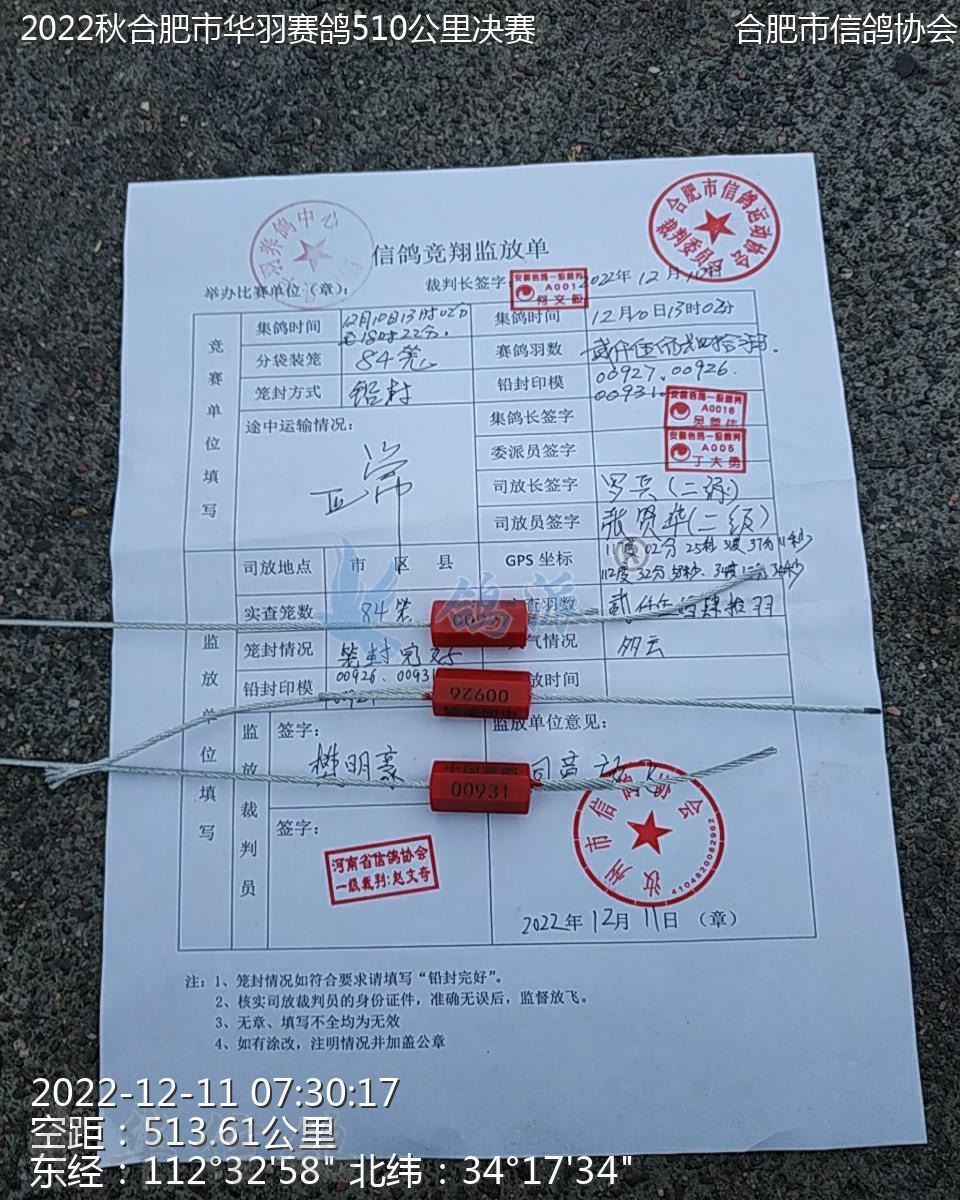 2022秋合肥市华羽赛鸽510公里决赛
合肥市信鸽协会
养鸽中心
合肥市信鸽运动协会
裁判委员会
信鸽竞翔监放单
举办比赛单位（章）：
裁判长签字：
2022年12月10日
安徽信鸽一级裁判
A001
竞赛单位填写
集鸽时间
12月10日13时02分
至18时22分.
集鸽时间
12月10日13时03分
分袋装笼
84笼
赛鸽羽数
笼封方式
铅封
铅封印模
00927、00926.
00931
途中运输情况：
正常
集鸽长签字
安徽信鸽一级裁判
A0016
委派员签字
安徽信鸽一级裁判
A005
丁大勇
司放长签字
罗兵(二级)
司放员签字
(二级)
司放地点
市 区 县
GPS 坐标
112度32分58秒.
实查笼数
84笼
查羽数
笼封情况
笼封完好
气情况
多云
铅封印模
00926、00931
放时间
监放单位填写
监放裁判员
签字：
樊明豪
监放单位意见：
同意放飞
00926
00931
签字：
河南省信鸽协会
一级裁判:赵文奇
汝州市信鸽协会
4104820082962
2022年12月11日（章）
注：1、笼封情况如符合要求请填写“铅封完好”。
2、核实司放裁判员的身份证件，准确无误后，监督放飞。
3、无章、填写不全均为无效
4、如有涂改，注明情况并加盖公章
鸽源
®
2022-12-11 07:30:17
空距：513.61公里
东经：112°32'58" 北纬：34°17'34"